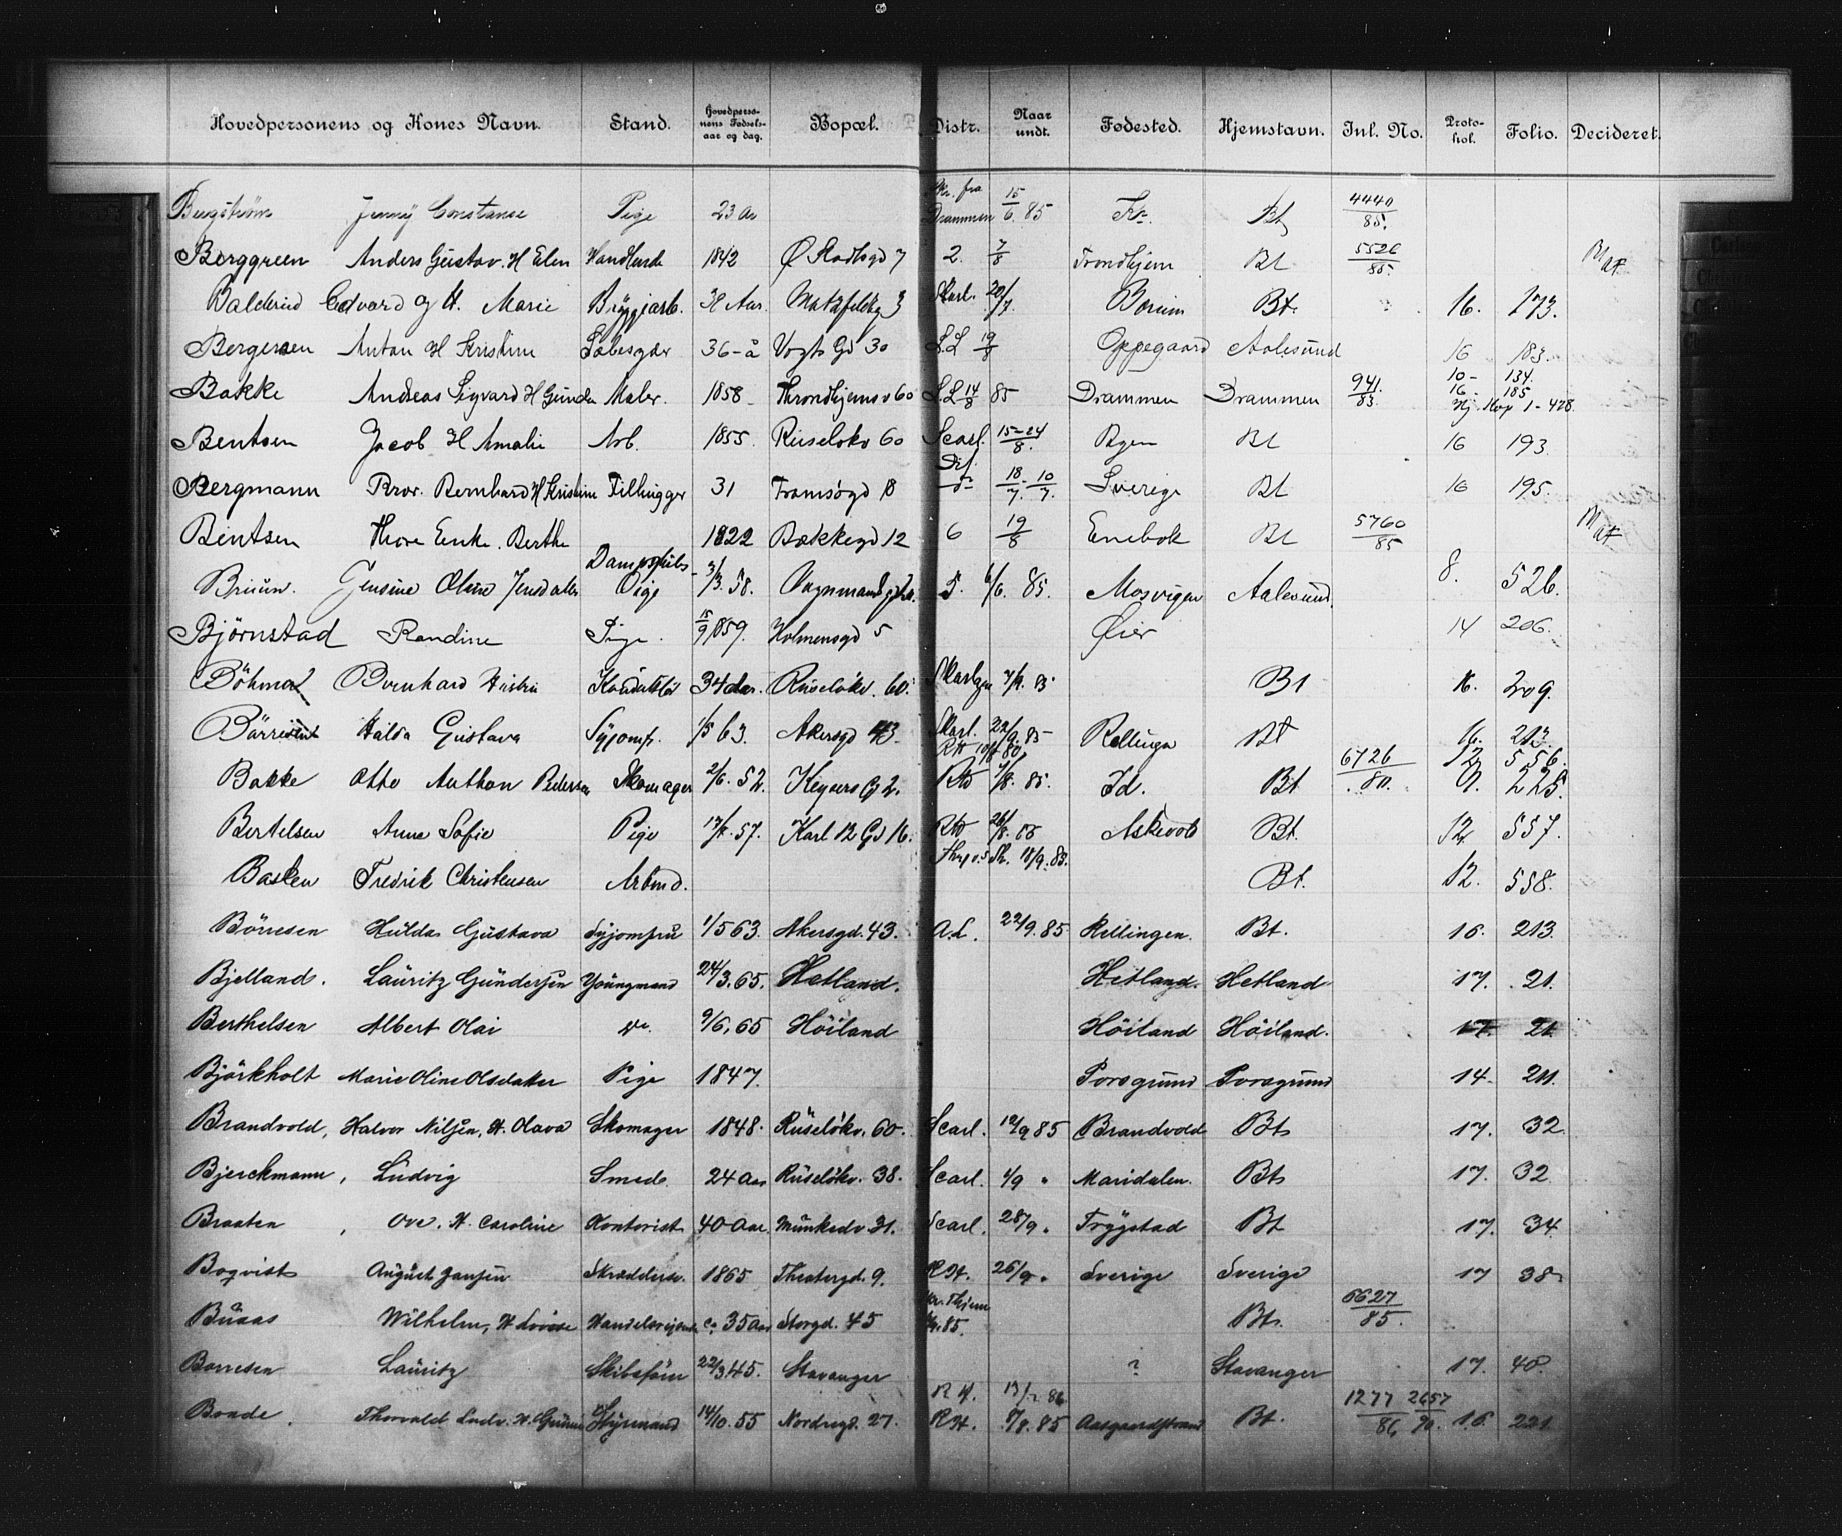 Hovedpersonens og Kones Navn. Stand. Hovedpersonens Fødselsaar og dag. Bopæl. Distr. Naar undt. Fødested. Hjemstavn. Inl. No. Protokol. Folio. Decideret.
Bergstrøm Jenny Constanse Pige 23 Aar fra Drammen 15/6. 85 Bt 4440/85.
Berggreen Anders Gustav. H Elen Handlende 1842 Ø Slodtsgd 7 2. 7/8 Trondhjem Bt 5526/85 Mat
Balderud Edvard og H. Marie Bryggearb. Aar. 3 Skarl. 20/7. Bærum Bt. 16. 173.
Bergersen Anton H Kristine 36-å Vogts Gd 30 S.L 19/8 Oppegaard Aalesund 16 183.
Bakke Andreas Sigvard H Gunda Maler. 1858 Throndhjemsv 60 S.L 14/8 85 Drammen Drammen 941./83. 10- 134. 16- 185 1-428
Bentsen Jacob H Amalie Arb. 1855. Ruseløkv 60 Scarl. 15-24/8. Bt 16 193.
Bergmann Bror. Bernhard H Kristine 31 Tromsøgd 18 18/7.-10/7. Sverige Bt 16 195.
Bentsen Thore Enke. Berthe 1822 Bækkegd 12 6 19/8 Enebak Bt 5760/85 Mat
Bruun. Jensine Oline Jensdatter Dampskibs- Pige 3/3. 58. 5. 6/6. 85. Mosvigen Aalesund. 8. 526.
Bjørnstad Randine Pige. 15/9 1859. Holmensgd 5 Øier 14 206.
Böhme Bernhard Hustru 34 Aar. Ruseløkv. 60. 7/9. 85 Bt 16. 209.
Gustava Syjomfr. 1/5 63. Akersgd 43. Skarl. 22/9. 85 Rellingen Bt 16. 213.
Bakke Otto Anthon Pedersen Skomager 2/6. 52. Keysers G 2. 85. Id. Bt 6726/80. 12. 556. 9. 225.
Bertelsen Anne Sofie Pige 57. Karl 12 Gd 16. Bt. 12. 557.
Fredrik Christensen Arbmd. 18/9. 85. Bt. 12. 558.
Börresen Hulda Gustava Syjomfru 1/5 63. Akersgd. 43. A.L. 22/9. 85 Rellingen. Bt. 16. 213.
Bjelland. Lauritz Gundersen Youngmand 24/3. 65. Hetland. Hetland. Hetland 17. 21.
Berthelsen Albert Olai do. 9/6, 65 Höiland Höiland Höiland. 17. 21.
Björkholt Marie Oline Olsdatter Pige 1847. Porsgrund Porsgrund 14. 211.
Brandvold, Halvor Nilsen, H. Olava Skomager 1848. Ruseløkv. 60. Scarl. 12/9 85 Brandvold Bt 17. 32.
Bjerckmann, Ludvig Smed. 24 Aar Ruseløkv. 38. Scarl. 4/9 " Maridalen. Bt 17. 32.
Braaten, Ove. H. Caroline Kontorist 40 Aar. Munkedv. 31. Scarl. 28/9 " Trygstad Bt 17. 34.
Boqvist August Jansen Skrædders. 1865 Theatergd. 9. R.H. 26/9 " Sverige Sverige 17 38
Buaas Wilhelm, H Lovise Handelsreisende ca. 35 Aar Storgd. 45 Thjem 85. Bt. 6627/85.
Borresen Lauritz Skibsfører 22/3 45. Stavanger ? Stavanger 17. 40
Bonde. Thorvald Ludv. H. Gunda Styrmand 14/10. 55 Nordregd. 27. R.H. 86 R.H. 85 Aasgaardstrand Bt. 1277/86 2657/90. 16. 221